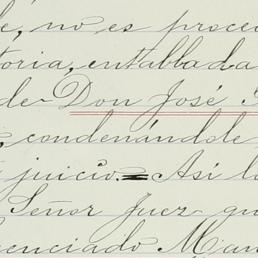 e, no es proce
toria, entablada
de Don José
, condenándole
juicio. = Así lo
Señor Juez qu
enciado Man